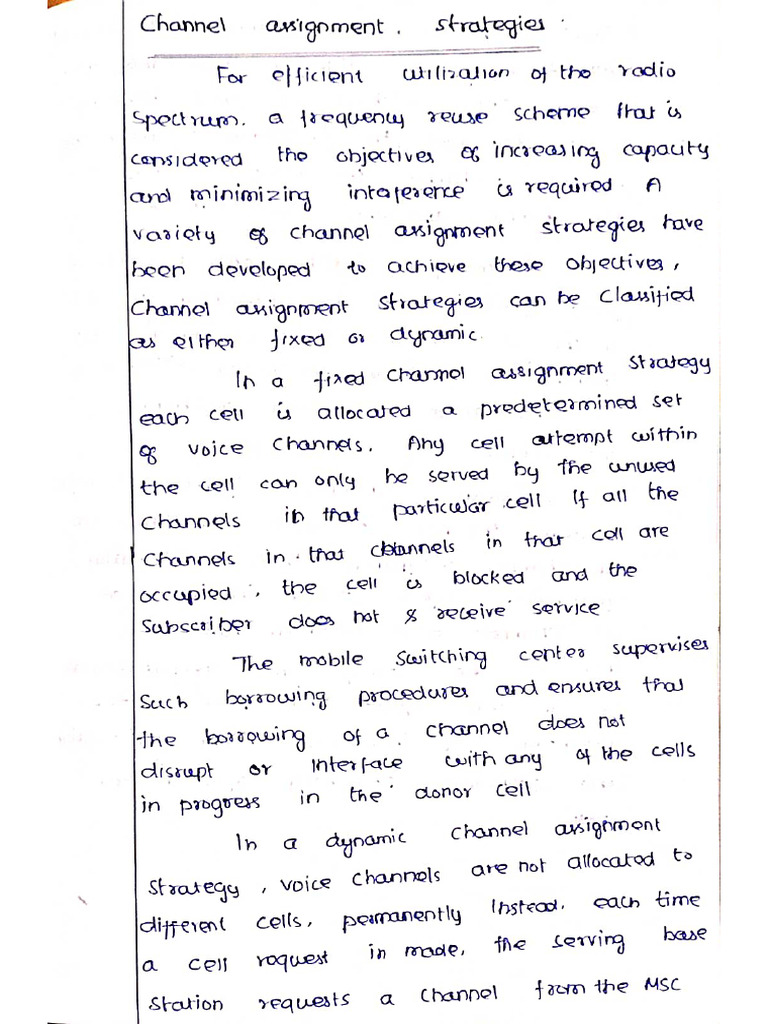 Channel assignment. Strategies.
For efficient utilization of the radio
Spectrum. a frequency reuse scheme that is
considered the objectives of increasing capacity
and minimizing inteference is required A
variety of channel assignment strategies have
been developed to achieve these objectives,
Channel assignment strategies can be classified
as either fixed or dynamic.
In a fixed channel assignment strategy
each cell is allocated a predetermined set
of voice channels. Any cell attempt within
the cell can only be served by the unused
channels in that particular cell If all the
channels in that channels in that cell are
occupied, the cell is blocked and the
subscriber does not & receive service
The mobile switching center supervises
such borrowing procedures and ensures that
the borrowing of a channel does not
disrupt or interface with any of the cells
in progress in the donor cell
In a dynamic channel assignment
strategy, voice channels are not allocated to
different cells, permanently Instead. each time
a cell roquest in made, the serving base
station requests a channel from the MSC